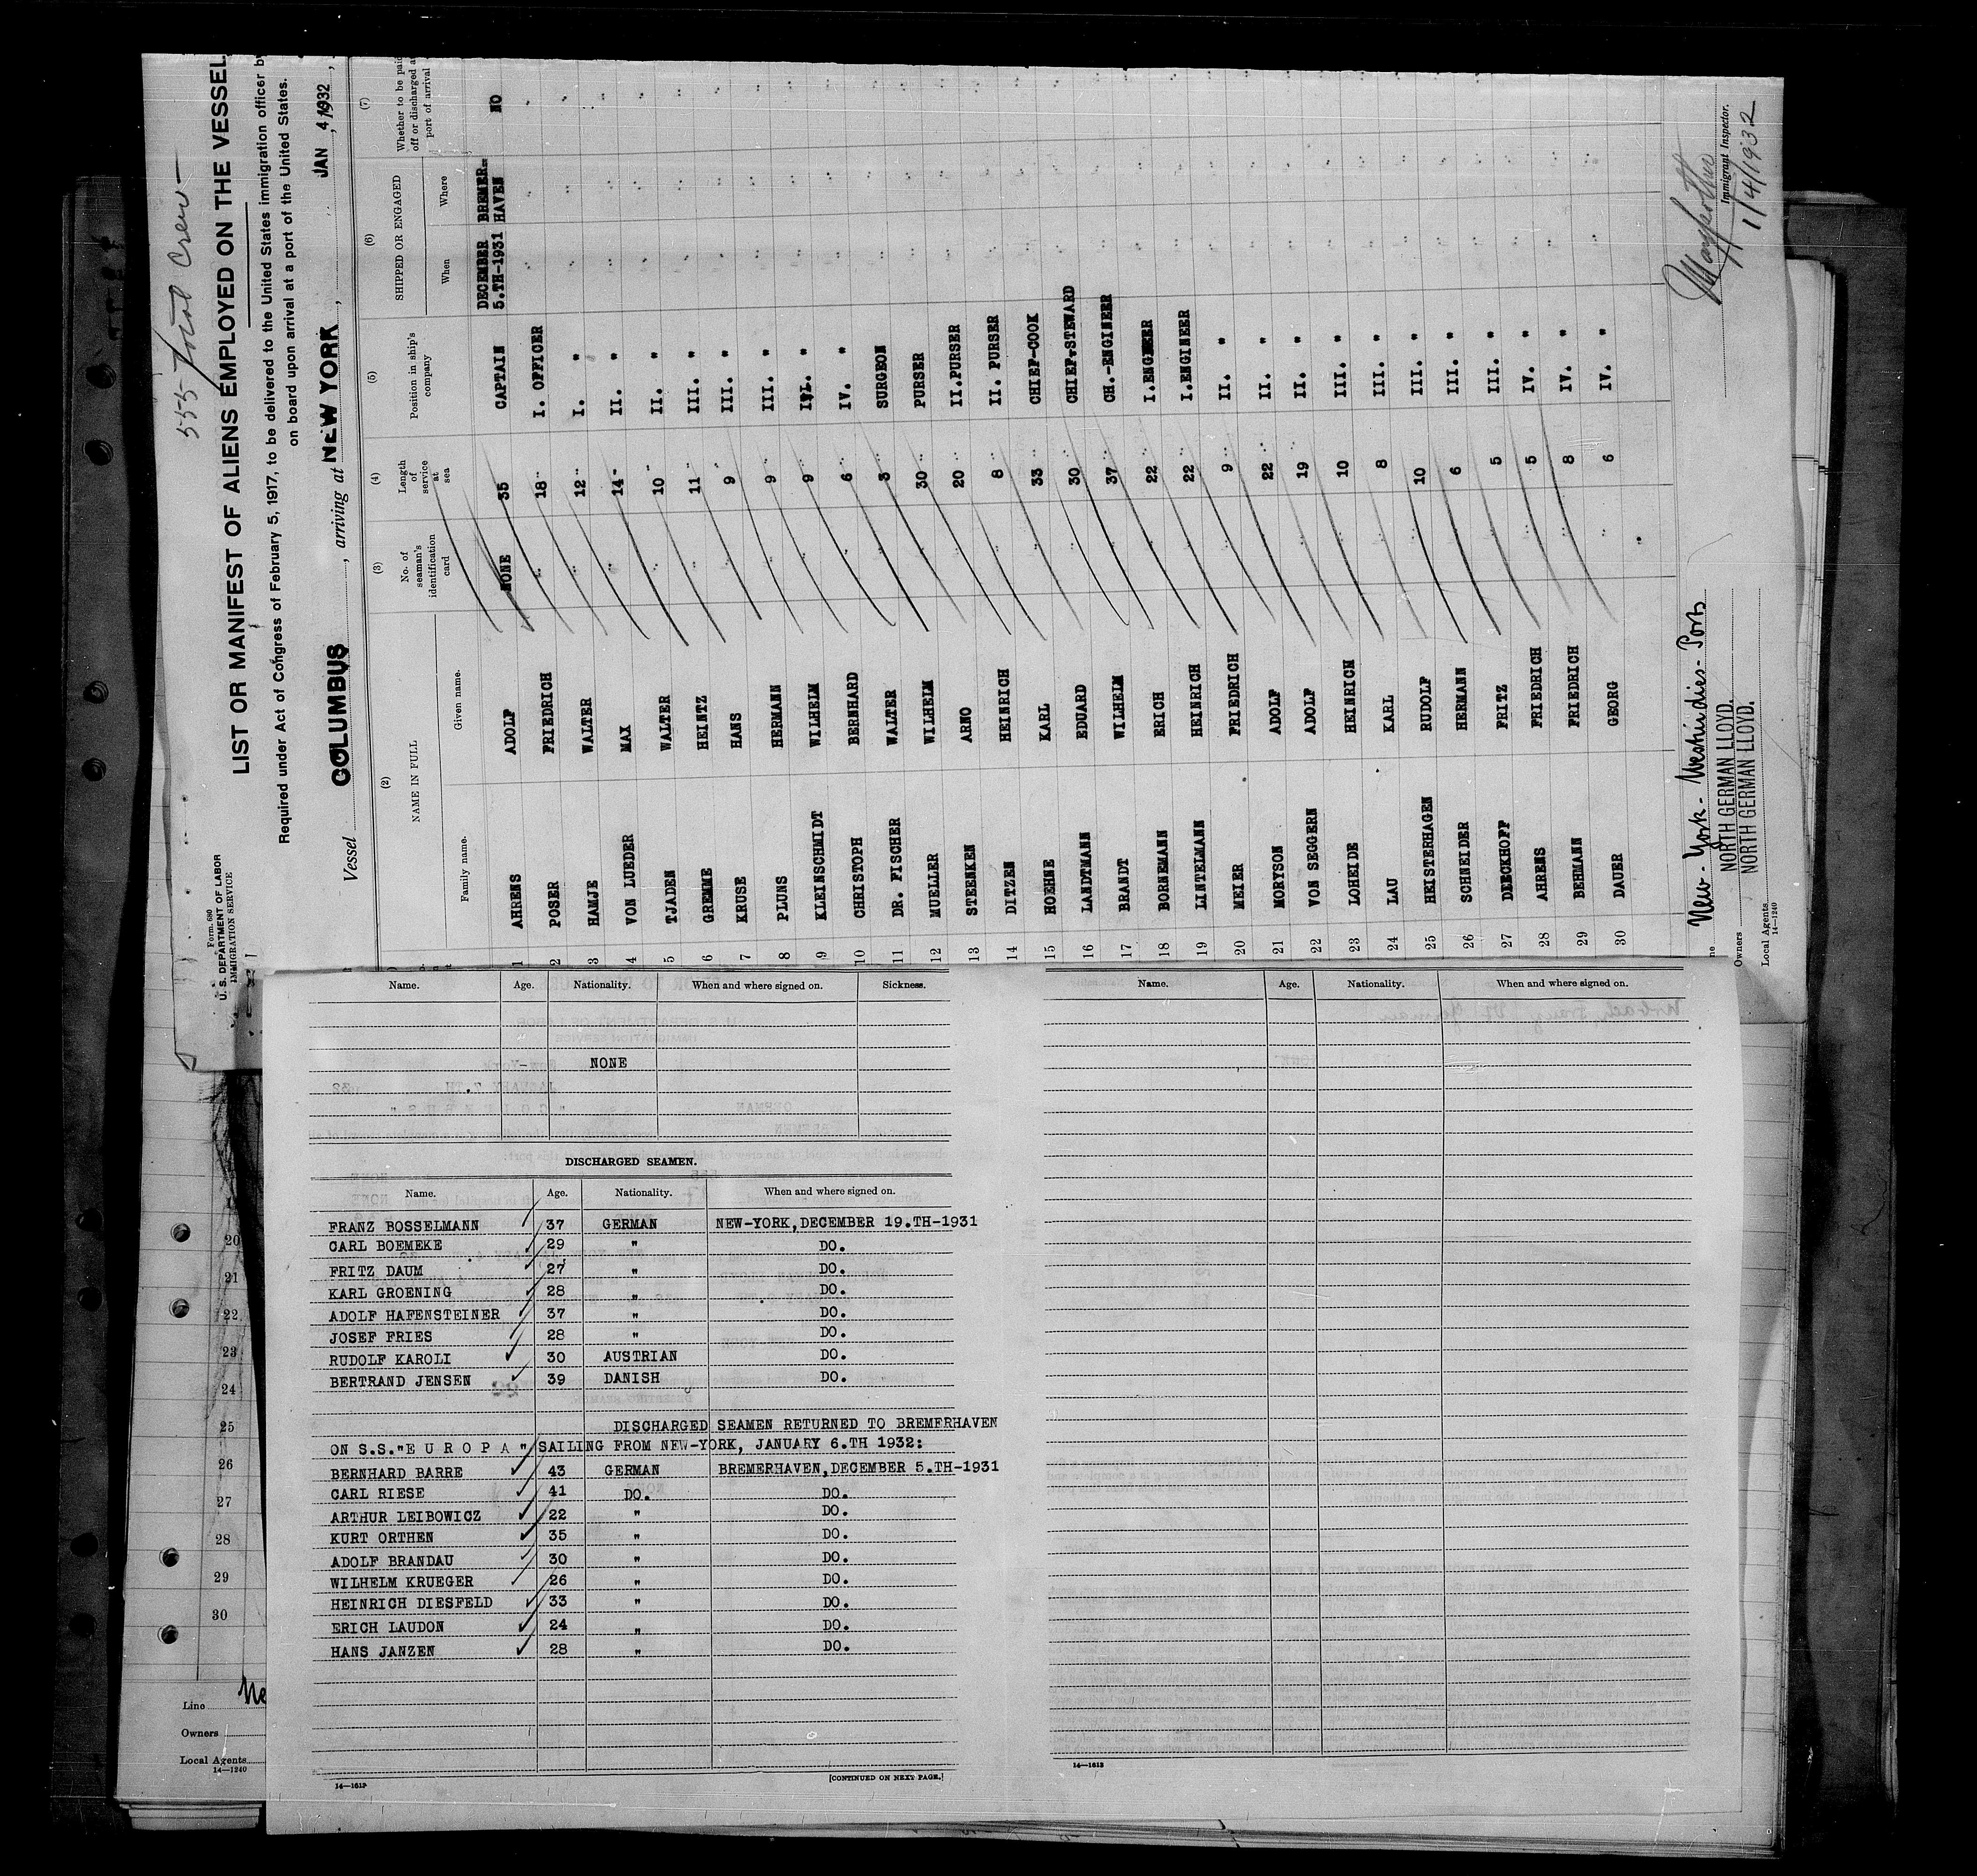 555 Total Crew —
Form 680
U. S. DEPARTMENT OF LABOR
IMMIGRATION SERVICE
LIST OR MANIFEST OF ALIENS EMPLOYED ON THE VESSEL
Required under Act of Congress of February 5, 1917, to be delivered to the United States immigration officer by
on board upon arrival at a port of the United States.
Vessel COLUMBUS, arriving at NEW YORK, JAN 4 1932,
(2) (3) (4) (5) (6) (7)
NAME IN FULL No. of seaman's identification card Length of service at sea Position in ship's company SHIPPED OR ENGAGED Whether to be paid off or discharged at port of arrival
Family name. Given name. When Where
1 AHRENS ADOLF NONE 35 CAPTAIN DECEMBER 5.TH-1931 BREMER=HAVEN NO
2 POSER FRIEDRICH 18 I. OFFICER
3 HAMJE WALTER 12 I. "
4 VON LUEDER MAX 14 II. "
5 TJADEN WALTER 10 II. "
6 GREMME HEINTZ 11 III. "
7 KRUSE HANS 9 III. "
8 PLUNS HERMANN 9 III. "
9 KLEINSCHMIDT WILHELM 9 "
10 CHRISTOPH BERNHARD 6 IV. "
11 DR. FISCHER WALTER 3 SURGEON
12 MUELLER WILHELM 30 PURSER
13 STEENKEN ARNO 20 II.PURSER
14 DITZEN HEINRICH 8 II. PURSER
15 HOEHNE KARL 33 CHIEF-COOK
16 LANDTMANN EDUARD 30 CHIEF-STEWARD
17 BRANDT WILHELM 37 CH.-ENGINEER
18 BORNEMANN ERICH 22 I.ENGINEER
19 LINTELMANN HEINRICH 22 I.ENGINEER
20 MEIER FRIEDRICH 9 II. "
21 MORYSON ADOLF 22 II. "
22 VON SEGGERN ADOLF 19 II. "
23 LOHEIDE HEINRICH 10 III. "
24 LAU KARL 8 III. "
25 HEISTERHAGEN RUDOLF 10 III. "
26 SCHNEIDER HERMANN 6 III. "
27 DEECKHOFF FRITZ 5 III. "
28 AHRENS FRIEDRICH 5 IV. "
29 BEHMANN FRIEDRICH 8 IV. "
30 DAUER GEORG 6 IV. "
New-York - Westindies-Ports
Owners NORTH GERMAN LLOYD.
Local Agents NORTH GERMAN LLOYD.
14—1240
Immigrant Inspector.
1/4/1932
Name. Age. Nationality. When and where signed on. Sickness.
NONE
DISCHARGED SEAMEN.
Name. Age. Nationality. When and where signed on.
FRANZ BOSSELMANN 37 GERMAN NEW-YORK,DECEMBER 19.TH-1931
CARL BOEMEKE 29 " DO.
FRITZ DAUM 27 " DO.
KARL GROENING 28 " DO.
ADOLF HAFENSTEINER 37 " DO.
JOSEF FRIES 28 " DO.
RUDOLF KAROLI 30 AUSTRIAN DO.
BERTRAND JENSEN 39 DANISH DO.
DISCHARGED SEAMEN RETURNED TO BREMERHAVEN
ON S.S."E U R O P A " SAILING FROM NEW-YORK, JANUARY 6.TH 1932:
BERNHARD BARRE 43 GERMAN BREMERHAVEN,DECEMBER 5.TH-1931
CARL RIESE 41 DO. DO.
ARTHUR LEIBOWICZ 22 " DO.
KURT ORTHEN 35 " DO.
ADOLF BRANDAU 30 " DO.
WILHELM KRUEGER 26 " DO.
HEINRICH DIESFELD 33 " DO.
ERICH LAUDON 24 " DO.
HANS JANZEN 28 " DO.
[CONTINUED ON NEXT PAGE.]
Name. Age. Nationality. When and where signed on.
14—1613
20
21
22
23
24
25
26
27
28
29
30
Line Ne
Owners
Local Agents
14—1240